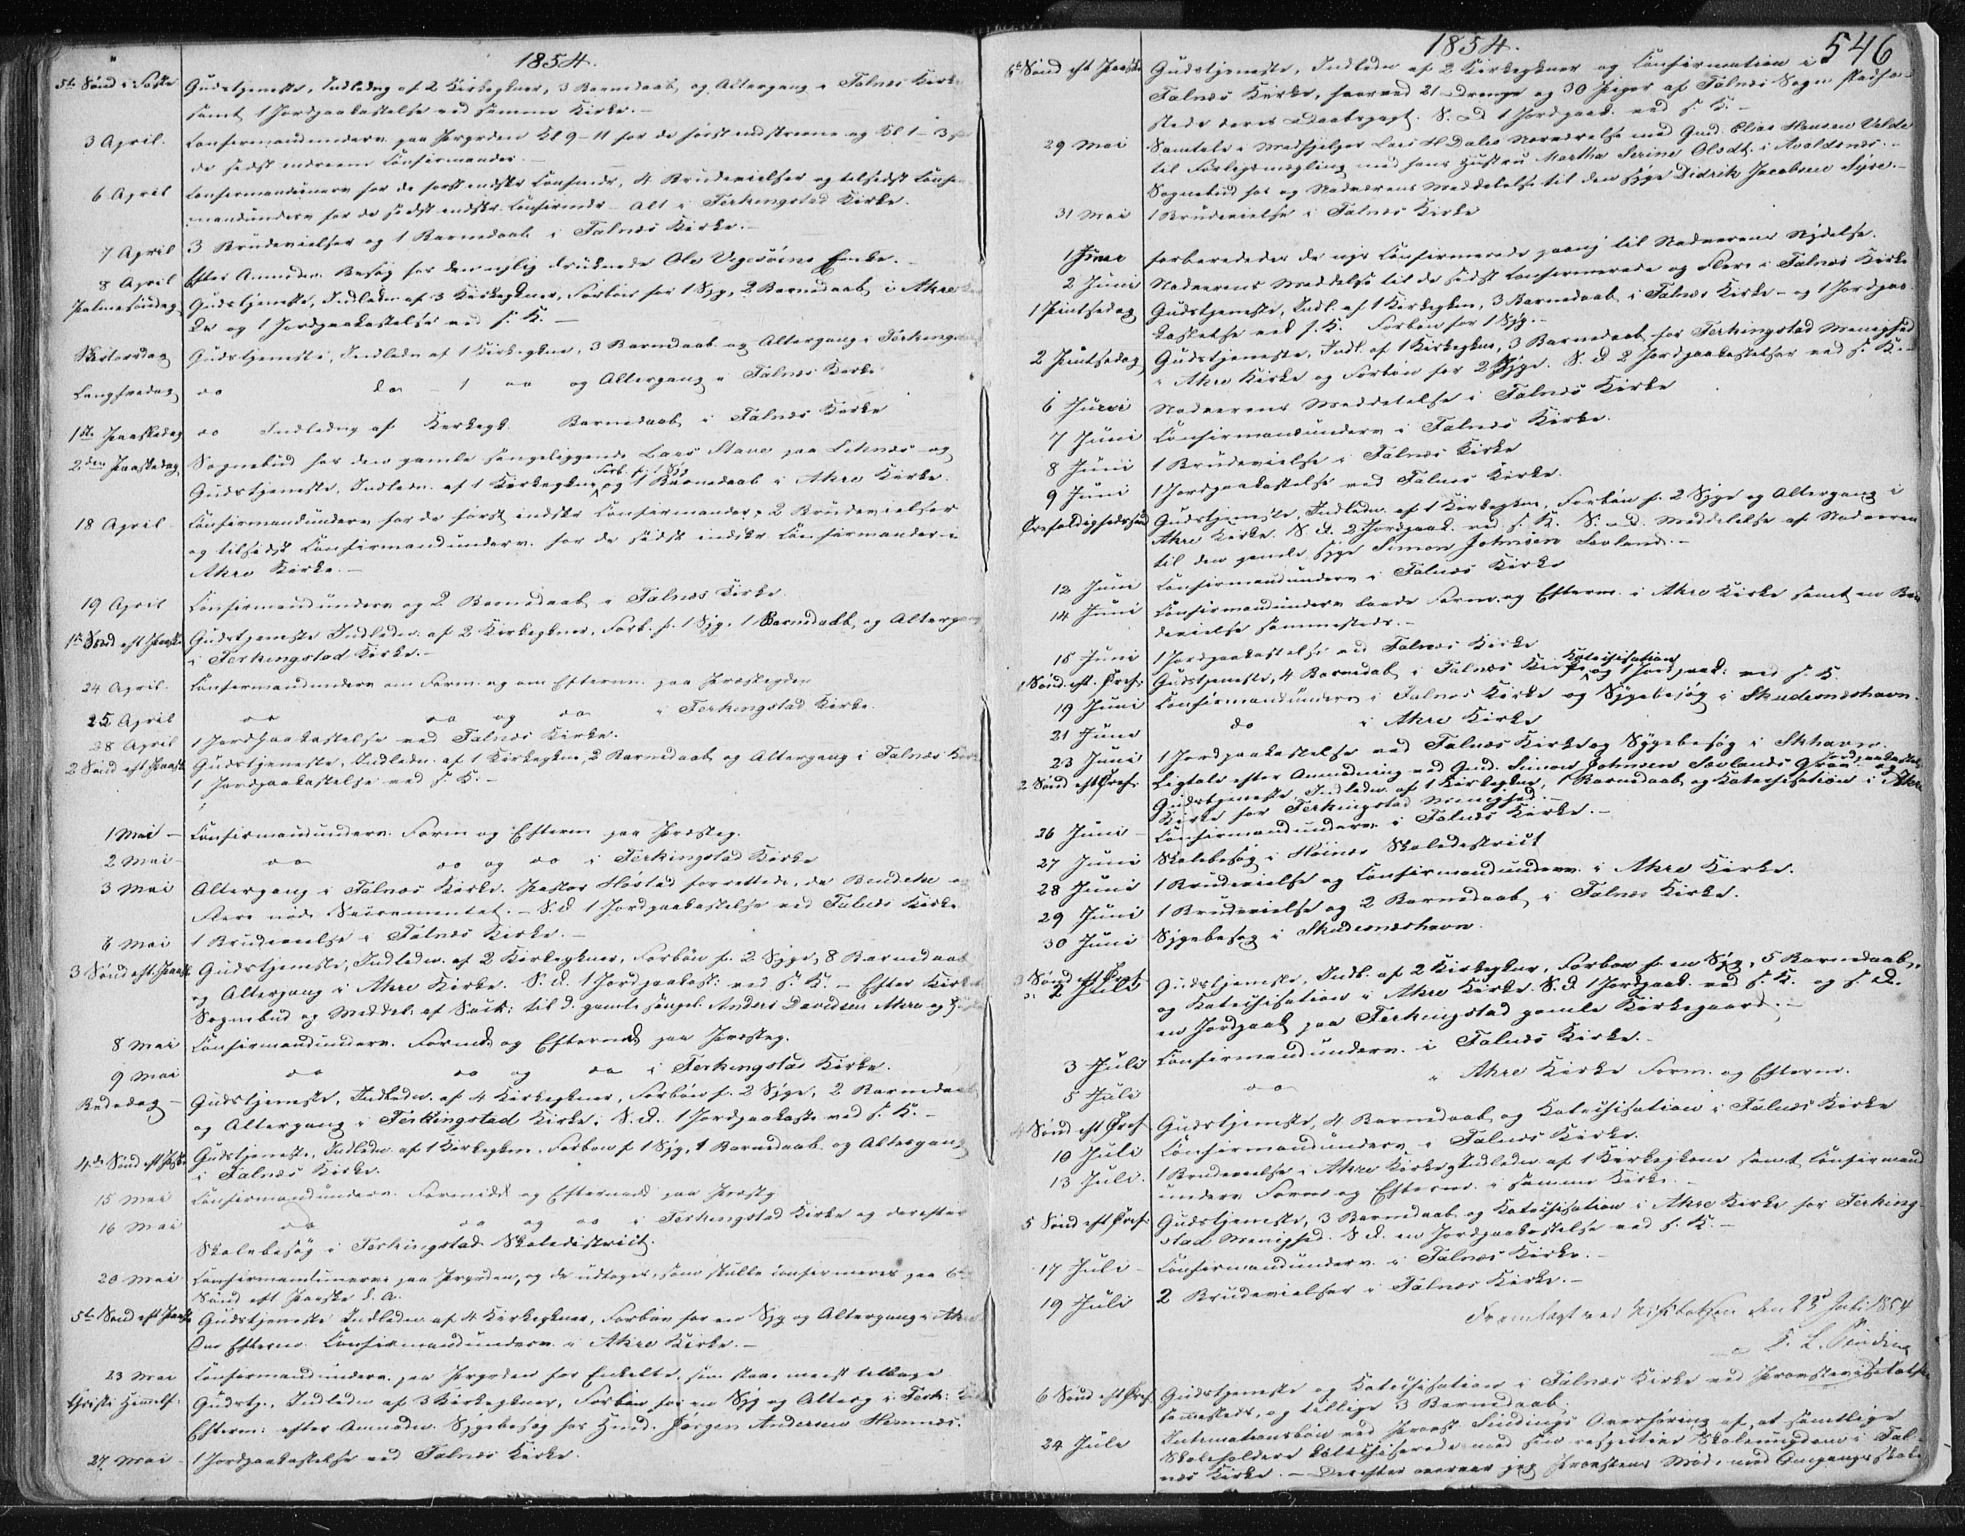 1854.
5te Sønd i Faste Gudstjeneste, Indledng af 2 Kirkegkner, 3 Barnedaab og Altergang i Falnæs Kirke
samt 1 Jordpaakastelse ved samme Kirke. –
3 April. Confirmandunderv. paa Prgrden Kl 9–11 for de først indskrevne og Kl 1–3 for
de sidst indkrevne Confirmander. –
6 April Confirmandunderv for de først indskr Confirmdr, 4 Brudevielser og tilsidst Confir-
mandunderv for de sidst indskr. Confirmdr – Alt i Ferkingstad Kirke.
7 April 3 Brudevielser og 1 Barnedaab i Falnæs Kirke. –
8 April Efter Anmodn. Besøg hos den nylig druknede Ole Vigesøins Enke. –
Palmesøndag Gudstjeneste, Indledn af 3 Kirkegkner, Forbøn for 1 Syg, 2 Barnedaab i Akre Kir-
ke og 1 Jordpaakastelse ved s. K. –
Skjærtorsdag Gudstjeneste, Indledn af 1 Kirkegkne, 3 Barnedaab og Altergang i Ferkingstad
Langfredag do do – 1 do og Altergang i Falnæs Kirke
1ste Paaskedag do Indledng af Kirkegk. Barnedaab i Falnæs Kirke
2den Paaskedag Sognebud hos den gamle sengeliggende Lars Stave paa Liknæs og
Gudstjeneste, Indledn. af 1 Kirkegkne, Forb. f. 1 Syg og 1 Barnedaab i Akre Kirke.
18 April – Confirmandunderv for de først indskr Confirmander, 2 Brudevielser
og tilsidst Confirmandunderv. for de sidst indskr. Confirmander i
Akre Kirke. –
19 April Confirmandunderv og 2 Barnedaab i Falnæs Kirke.
1ste Sønd eft Paaske Gudstjeneste Indledn. af 2 Kirkegkner, Forb. f. 1 Syg, 1 Barnedaab og Altergang
i Ferkingstad Kirke. –
24 April. Confirmandunderv om Form. og om Efterm. paa Præstegrden
25 April do do og do i Ferkingstad Kirke.
28 April 1 Jordpaakastelse ved Falnæs Kirke.
2 Sønd eft Paaske Gudstjeneste, Indledn. af 1 Kirkegkne, 2 Barnedaab og Altergang i Falnæs Kirke
1 Jordpaakastelse ved s. K. –
1 Mai – Confirmandunderv. Form og Efterm paa Præsteg.
2 Mai – do do og do i Ferkingstad Kirke
3 Mai Altergang i Falnæs Kirke. Pastor Høstad forrettede, da Bendeke og
Flere nød Sacramentet. – S. d 1 Jordpaakastelse ved Falnæs Kirke
6 Mai 1 Brudevielse i Falnæs Kirke. –
3 Sønd eft. Paaske Gudstjeneste, Indledn. af 2 Kirkegkner, Forbøn f. 2 Syge, 8 Barnedaab
og Altergang i Akre Kirke. S. d. 1 Jordpaakast: ved s. K. – Efter Kirket.
Sognebud og Meddel. af Sack: til d. gamle sengel. Anders Davidsen Akre og
8 Mai Confirmandunderv. Formd og Eftermd paa Præsteg.
9 Mai do do og do i Ferkingstad Kirke.
Bededag – Gudstjeneste, Indledn. af 4 Kirkegkner, Forbøn f. 2 Syge, 2 Barnedaab
og Altergang i Ferkingstad Kirke. S. d. 1 Jordpaakaste ved s. K. –
4de Sønd eft Paaske Gudstjeneste, Indledn af 1 Kirkegkne. Forbøn f 1 Syg, 1 Barnedaab og Altergang
i Falnæs Kirke.
15 Mai Confirmandunderv. Formidd og Eftermdd paa Præstg
16 Mai do do og do i Ferkingstad Kirke og derefter
Skolebesøg i Ferkingstad Skoledistrict.
20 Mai Confirmandunderv paa Prgrden, og de udtoges, som skulle confirmeres paa 6te
Sønd eft Paaske d. A.
5te Sønd eft Paaske Gudstjeneste Indledn. af 4 Kirkegkner, Forbøn for en Syg og Altergang i Akre
Om Efterm Confirmandunderv i Akre Kirke. –
23 Mai Confirmandunderv. paa Prgrden for Enkelte, som staae meest tilbage
Christi Himmelf. Gudstj., Indledn af 3 Kirkegkner, Forbøn for en Syg og Alterg i Ferk: Kirk
Efterm: efter Anmodn. Sygebesøg hos Huusm. Jørgen Andersen Hemnes.
27. Mai – 1 Jordpaakastelse ved Falnæs Kirke.
1854. 546
6te Sønd eft Paaske Gudstjeneste, Indledn af 2 Kirkegkner og Confirmation i
Falnæs Kirke, hvorved 21 Drenge og 30 Piger af Falnæs Sogn stadfæ-
stede deres Daabspagt. S. D 1 Jordpaak. ved s. K. –
29 Mai Samtale i Medhjelper Lars H Dales Nærværelse med Gmd. Elias Hansen Velde
til Forligsmægling med hans Hustru Martha Serine Olsdt. i Avaldsnæs. –
Sognebud hos og Nadverens Meddelelse til den syge Didrik Jacobsen Syre. –
31 Mai 1 Brudevielse i Falnæs Kirke
1 Juni forberededes de nye Confirmerede paany til Nadverens Nydelse.
2 Juni Nadverens Meddelelse til de sidst Confirmerede og Flere i Falnæs Kirke
1 Pintsedag Gudstjeneste, Indl. af 1 Kirkegkne, 3 Barnedaab i Falnæs Kirke – og 1 Jordpaa-
kastelse ved s. K. Forbøn for 1 Syg. –
2 Pintsedag Gudstjeneste, Indl. af 1 Kirkegkne, 3 Barnedaab for Ferkingstad Menighed
i Akre Kirke og Forbøn for 2 Syge. S. d 2 Jordpaakastelser ved s. K. –
6 Juni Nadverens Meddelelse i Falnæs Kirke
7 Juni Confirmandunderv i Falnæs Kirke.
8 Juni 1 Brudevielse i Falnæs Kirke
9 Juni 1 Jordpaakastelse ved Falnæs Kirke.
Trefoldighedssønd Gudstjeneste, Indledn. af 1 Kirkegkne, Forbøn f. 2 Syge og Altergang i
Akre Kirke. S. d. 2 Jordpaak. ved s. K. S. d. Meddelelse af Nadveren
til den gamle syge Simon Johnsen Sævland. –
12 Juni Confirmandunderv i Falnæs Kirke
14 Juni Confirmandunderv baade Form. og Efterm. i Akre Kirke samt en Bru-
devielse sammesteds. –
15 Juni 1 Jordpaakastelse ved Falnæs Kirke
1 Sønd. eft. Tref. Gudstjeneste, 4 Barnedab i Falnæs Kirke, Katechisation og 1 Jordpaak: ved s. K.
19 Juni Confirmandunderv i Falnæs Kirke og Sygebesøg i Skudesneshavn.
21 Juni do i Akre Kirke
23 Juni 1 Jordpaakastelse ved Falnæs Kirke og Sygebesøg i Skhavn.
2 Sønd eft Tref. Ligtale efter Anmodning ved Gmd. Simon Johnsen Sævlands Grav. Jordpaakastel. og
Gudstjeneste, Indledn. af 1 Kirkegkne, 1 Barnedaab og Katechisation i Akre
Kirke for Ferkingstad Menighed. –
26 Juni – Confirmandunderv i Falnæs Kirke. –
27 Juni Skolebesøg i Høines Skoledistrict
28 Juni 1 Brudevielse og Confirmandunderv. i Akre Kirke.
29 Juni 1 Brudevielse og 2 Barnedaab i Falnæs Kirke.
30 Juni Sygebesøg i Skudesneshavn.
3 Sønd eft Tref. Gudstjeneste, Indl. af 2 Kirkegkner, Forbøn f. en Syg, 5 Barnedaab,
2 Juli og Katechisation i Akre Kirke S. d 1 Jordpaak. ved s. K. og s. D.
en Jordpaak paa Ferkingstad gamle Kirkegaard. –
3 Juli Confirmandunderv. i Falnæs Kirke. –
5 Juli do i Akre Kirke Form. og Efterm.
4 Sønd eft Tref. Gudstjeneste, 4 Barnedaab og Katechisation i Falnæs Kirke
10 Juli Confirmandunderv i Falnæs Kirke.
13 Juli. 1 Brudevielse i Akre Kirke, Indledn af 1 Kirkegkone samt Confirmand
underv Form og Efterm. i samme Kirke. –
5 Sønd eft Tref. Gudstjeneste, 3 Barnedaab og Katechisation i Akre Kirke for Ferking-
stad Menighed. S. d. en Jordpaakastelse ved s. K. –
17 Juli – Confirmandunderv. i Falnæs Kirke. –
19 Juli 2 Brudevielser i Falnæs Kirke. –
Fremlagt ved Visitatsen den 23 Juli 1854
L. Sinding
6 Sønd eft Tref. Gudstjeneste og Katechisation i Falnæs Kirke ved Provstevisitatsen
sammesteds, og tillige 3 Barnedaab.
24 Juli Intimationsbøn ved Provst Sindings Overhøring af, at samtlige
Skoleholdere katechiserede med sin respective Skoleungdom i Fal-
næs Kirke. – Derefter overvar jeg Provstens Møde med Omgangsskole-